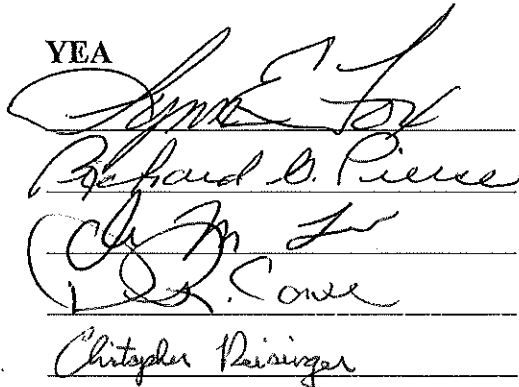 YEA
Lynn E Fox
Richard G. Pierce
M
R. Cowe
Christopher Reisinger